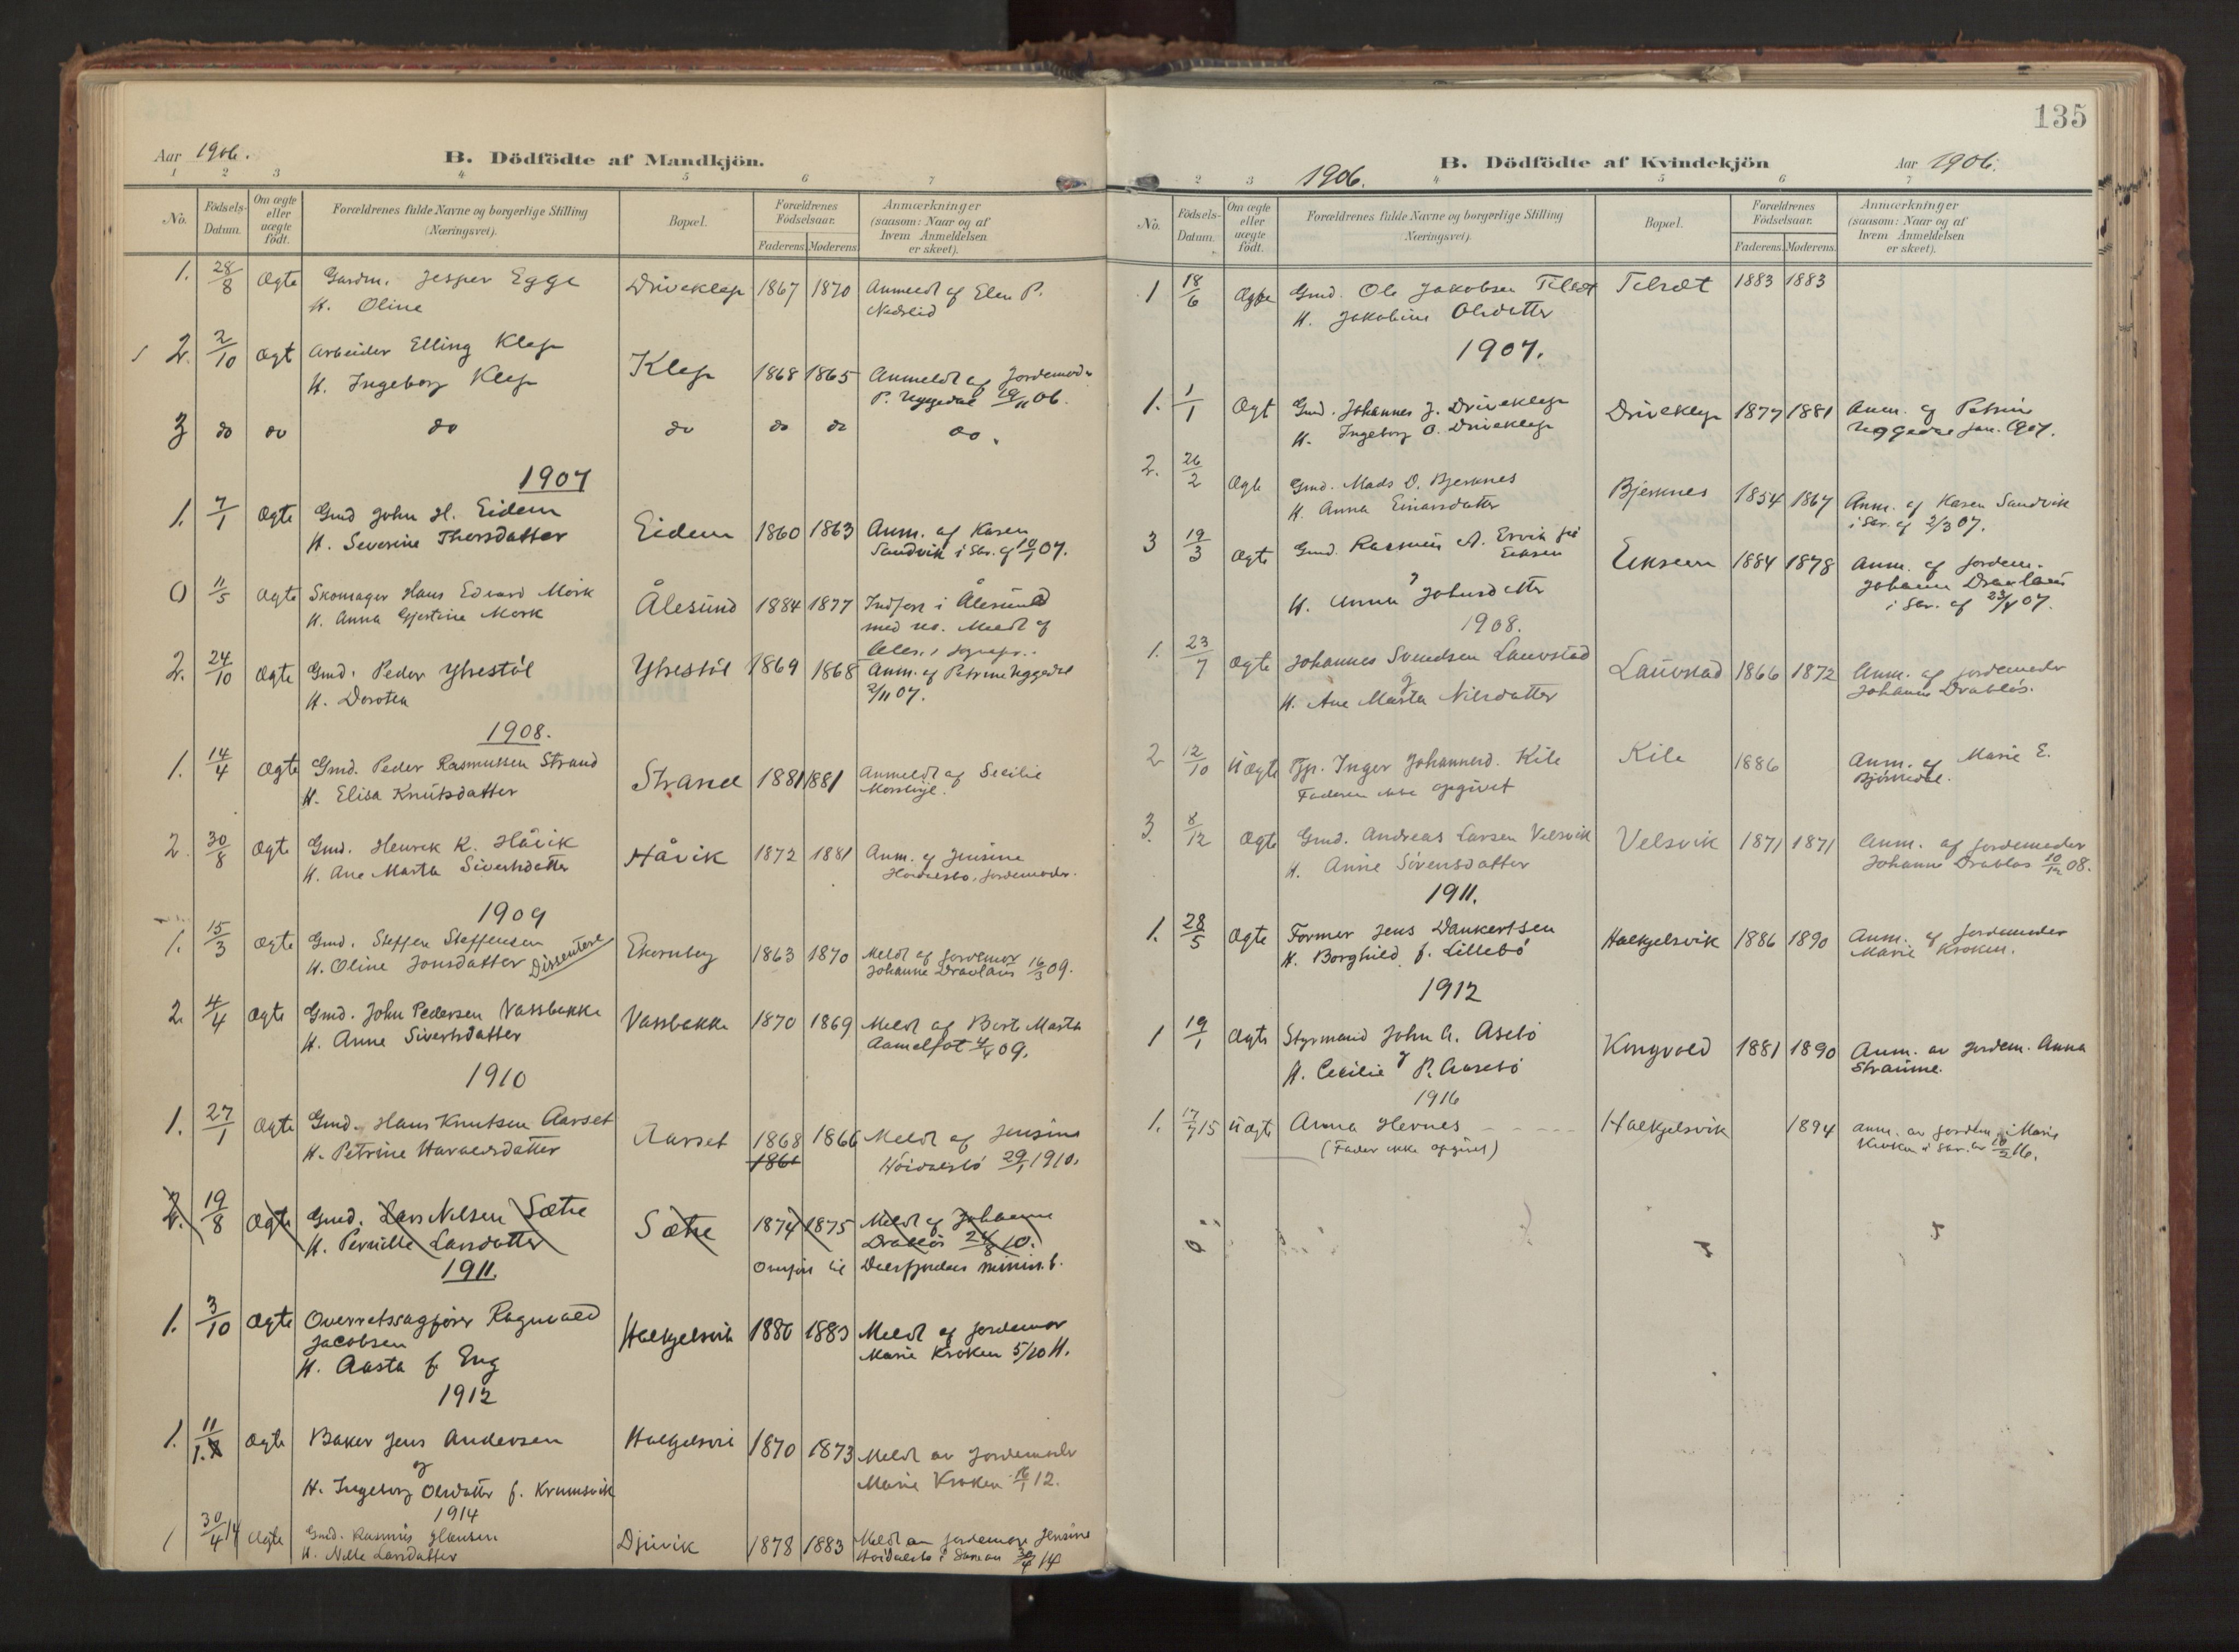 Aar 1906.
B. Dödfödte af Mandkjön.
1 2 3 4 5 6 7
No.
Födsels-
Datum.
Om ægte
eller
uægte
födt.
Forældrenes fulde Navne og borgerlige Stilling
(Næringsvei).
Bopæl.
Forældrenes
Födselsaar.
Faderens. Moderens.
Anmærkninger
(saasom: Naar og af
hvem Anmeldelsen
er skeet).
1. 28/8 Ægte Gaardm. Jesper Egge Driveklep 1867 1870 Anmeldt af Elen P.
H. Oline
2. 2/10 Ægt Arbeider Elling Klep Klep 1868 1865 Anmeldt af Jordemoder
H. Ingeborg Klep P. Uggedal 06.
3 do do do do do do do.
1907
1. 7/1 Ægte Gmd John H. Eidem Eidem 1860 1863 Anm. af Karen
H. Severine Thorsdatter Sandvik i Skr. af 10/1 07.
0 11/5 Ægte Skomager Hans Edvard Mork Ålesund 1884 1877 Indført i Ålesund
H. Anna Gjertine Mork med no. Meldt af
2. 24/10 Ægte Gmd. Peder Ytrestöl Ytrestöl 1869 1868 Anm. af Petrine Uggedal
H. Dorotea 2/11 07.
1908.
1. 14/4 Ægte Gmd. Peder Rasmussen Strand Strand 1881 1881 Anmeldt af Secilie
H. Elisa Knutsdatter
2 30/8 Ægte Gmd. Henrik K. Håvik Håvik 1872 1881 Anm. af Jensine
H. Ane Marta Sivertsdatter Jordemoder.
1909
1. 15/3 Ægte Gmd. Steffen Steffensen Ekornby 1863 1870 Meldt af Jordemor
H. Oline Jonsdatter Dissentere Johanne 16/3 09.
2 4/4 Ægte Gmd. John Pedersen Vassbakke Vassbakke 1870 1869 Meldt af Berte Marta
H. Anne Sivertsdatter Aamelfot 4/4 09.
1910
1. 27/1 Ægte Gmd. Hans Knutsen Aarset Aarset 1868 1866 Meldt af Jensine
H. Petrine Haraldsdatter Höidalsbö 29/1 1910.
2. 19/8 Ægte Gmd. Lars Nilsen Sætre Sætre 1874 1875 Meldt af Johanne
H. Pernille Larsdatter Drabløs 24/8 10.
1911. Overført til Dalsfjordens minist.b.
1. 3/10 Ægte Overretssagfører Ragnvald Halkjelsvik 1880 1883 Meldt af Jordemor
Jacobsen Marie Kroken 5/10 11.
H. Aasta f. Eng
1912
1. 11/1 Ægte Baker Jens Andersen 1870 1873 Meldt av Jordemoder
og Marie Kroken 16/1 12.
H. Ingeborg Olsdatter f.
1914
1 30/4 14 Ægte Gmd. Rasmus Hansen Djuvik 1878 1883 Meldt av Jordemor Jensine
H. Larsdatter 30/4 14
135
1906.
B. Dödfödte af Kvindekjön
Aar 1906.
2 3 4 5 6 7
No.
Födsels-
Datum.
Om ægte
eller
uægte
födt.
Forældrenes fulde Navne og borgerlige Stilling
(Næringsvei).
Bopæl.
Forældrenes
Födselsaar.
Faderens. Moderens.
Anmærkninger
(saasom: Naar og af
hvem Anmeldelsen
er skeet).
1 18/6 Ægte Gmd. Ole Jakobsen 1883 1883
H. Jakobine Olsdatter
1907.
1. 1/1 Ægt Gmd. Johannes J. Driveklep Driveklep 1877 1881 Anm. af Petrine
H. Ingeborg O. Driveklep Uggedal jan. 1907.
2. 26/2 Ægte Gmd. Mads D. Bjerknes Bjerknes 1854 1867 Anm. af Karen Sandvik
H. Anna Einarsdatter i Skr. af 2/3 07.
3 19/3 Ægte Gmd. Rasmus A. Ervik Eiksem 1884 1878 Anm. af Jordem.
H. Anna Johnsdatter Johanne
i Skr. af 23/4 07.
1908.
1. 23/7 Ægte Johannes Svendsen Lauvstad Lauvstad 1866 1872 Anm. af Jordemoder
og Johanne Drabløs.
H. Ane Marta Nilsdatter
2 12/10 Uægte Pg. Inger Johannesd. Kile Kile 1886 Anm. af Marie E.
Faderen ikke opgivet Bjørnedal.
3. 8/12 Ægte Gmd. Andreas Larsen Velsvik Velsvik 1871 1871 Anm. af Jordemoder
H. Anne Sörensdatter Johanne Drabløs 10/12 08.
1911.
1. 28/5 Ægte Former Jens Dankertsen Halkjelsvik 1886 1890 Anm. af Jordemoder
H. Borghild f. Lillebö Marie Kroken.
1912
1 19/1 Ægte Styrmand John A. Asebö Kongvold 1881 1890 Anm. av Jordem. Anna
og Straume.
H. Cecilie P. Aasebö
1916
1. 17/7 15 Uægt Anna Hevnes Halkjelsvik 1894 anm. av Jordem. Marie
(Fader ikke opgivet) Kroken i Skr. av 16.